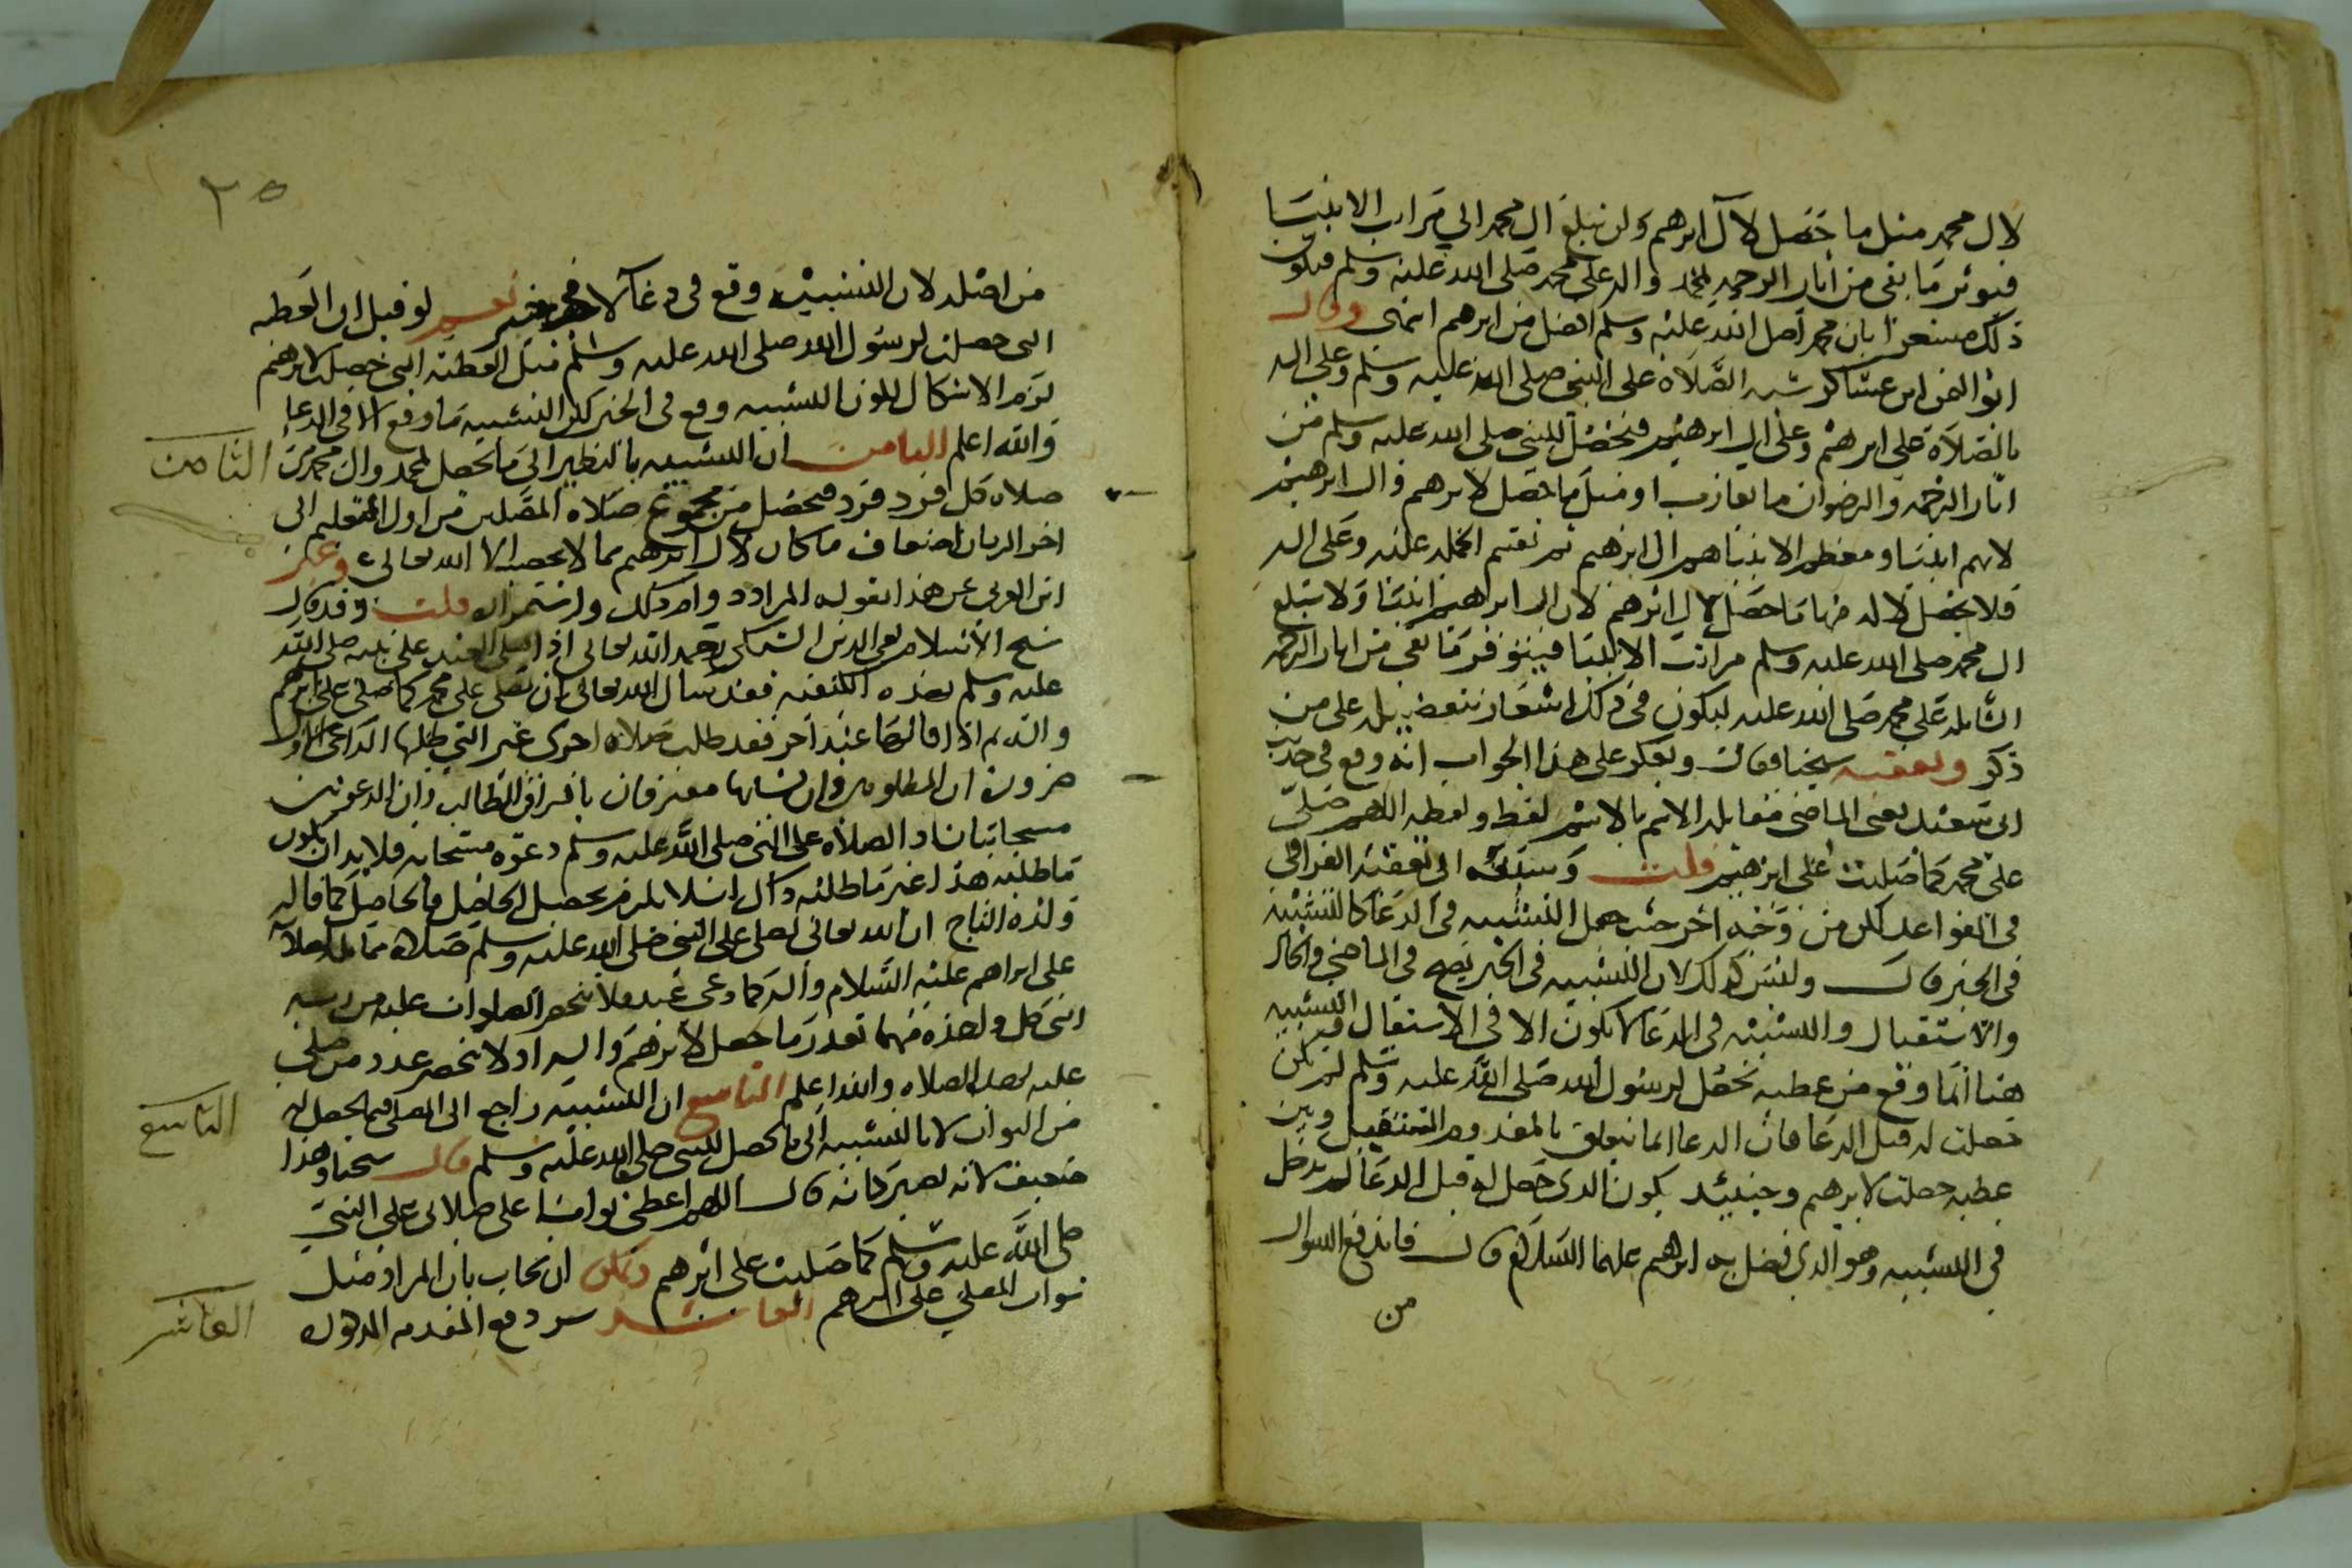 لال محمد مثل ما حصل لآل ابرهيم ولن تبلغ ال محمد الى مراتب الانبيا
فيوفر ما بقي من اثار الرحمة لمحمد واله على محمد صلى الله عليه وسلم فيكون
ذلك مشعرا بان محمدا صلى الله عليه وسلم افضل من ابرهيم انتهى وقال
ابو اليمن ابن عساكر شبه الصلاة على النبي صلى الله عليه وسلم وعلى اله
بالصلاة على ابرهيم وعلى ال ابرهيم فيحصل للنبي صلى الله عليه وسلم من
اثار الرحمة والرضوان ما يقارب او مثل ما حصل لابرهيم وال ابرهيم
لانهم انبيا ومعظم الانبيا هم ال ابرهيم ثم تقسم الجملة عليه وعلى اله
فلا يحصل لاله منها ما حصل لال ابرهيم لان ال ابراهيم انبيا ولا تبلغ
ال محمد صلى الله عليه وسلم مراتب الانبيا فيتوفر ما بقي من اثار الرحمة
الشاملة على محمد صلى الله عليه ليكون في ذلك اشعار بتفضيله على من
ذكر وتعقبه شيخنا فقال ويعكر على هذا الجواب انه وقع في حديث
ابي سعيد يعني الماضي مقابلة الاسم بالاسم فقط ولفظه اللهم صل
على محمد كما صليت على ابرهيم قلت وسبقه الى تعقبه القرافي
في القواعد لكن من وجه اخر حيث جعل التشبيه في الدعا كالتشبيه
في الخبر قال وليس كذلك لان التشبيه في الخبر يصح في الماضي والحال
والاستقبال والتشبيه في الدعا لا يكون الا في الاستقبال التشبيه
هنا انما وقع من عطية تحصل لرسول الله صلى الله عليه وسلم لم تكن
حصلت له قبل الدعا فان الدعا انما يتعلق بالمعدوم المستقبل وبين
عطية حصلت لابرهيم وحينئذ يكون الذي حصل له قبل الدعا لم يدخل
في التشبيه وهو الذي فضل به ابرهيم عليهما السلام قال فاندفع السوال
من
٢٥
من اصله لان التشبيه وقع في دعآ لا في خبر نعم لو قيل ان العطية
التي حصلت لرسول الله صلى الله عليه وسلم مثل العطية التي حصلت لابرهيم
لزم الاشكال لكون التشبيه وقع في الخبر لكن التشبيه ما وقع الا في الدعا
والله اعلم الثامن ان التشبيه بالنظر الى ما يحصل لمحمد وال محمد من
الثامن
صلاة كل فرد فرد فيحصل من مجموع صلاة المصلين من اول التعليم الى
اخر الزمان اضعاف ما كان لال ابرهيم مما لا يحصيه الا الله تعالى وعبر
ابن العربي عن هذا بقوله المراد دوام ذلك واستمراره قلت وقد قال
شيخ الاسلام تقي الدين السبكي رحمه الله تعالى اذا صلى العبد على نبيه صلى الله
عليه وسلم بهذه الكيفية فقد سال الله تعالى ان يصلي على محمد كما صلى على ابرهيم
واله ثم اذا قالها عبد آخر فقد طلب صلاة اخرى غير التي طلبها الداعي الاول
ضرورة ان المطلوبين وان تشابها مفترقان بافتراق الطالب وان الدعوتين
مستجابتان اذ الصلاة على النبي صلى الله عليه وسلم دعوة مستجابة فلا بد ان يكون
ما طلبه هذا غير ما طلبه ذاك لئلا يلزم تحصيل الحاصل كما قاله
ولده التاج ان الله تعالى يصلي على النبي صلى الله عليه وسلم صلاة مماثلة لصلاته
على ابراهيم عليه السلام واله كلما دعى عبد فلا تنحصر الصلوات عليه من ربه
التي كل واحدة منها بقدر ما حصل لابرهيم واله اذ لا ينحصر عدد من صلى
عليه بهذه الصلاة والله اعلم التاسع ان التشبيه راجع الى المصلي فيما يحصل له
التاسع
من الثواب لا بالتشبيه الى ما يحصل للنبي صلى الله عليه وسلم قال شيخنا وهذا
ضعيف لانه يصير كانه قال اللهم اعطني ثوابا على صلاتي على النبي
صلى الله عليه وسلم كما صليت على ابرهيم ويمكن ان يجاب بان المراد مثل
ثواب المصلي على ابرهيم العاشر دفع المقدمة المذكورة
العاشر